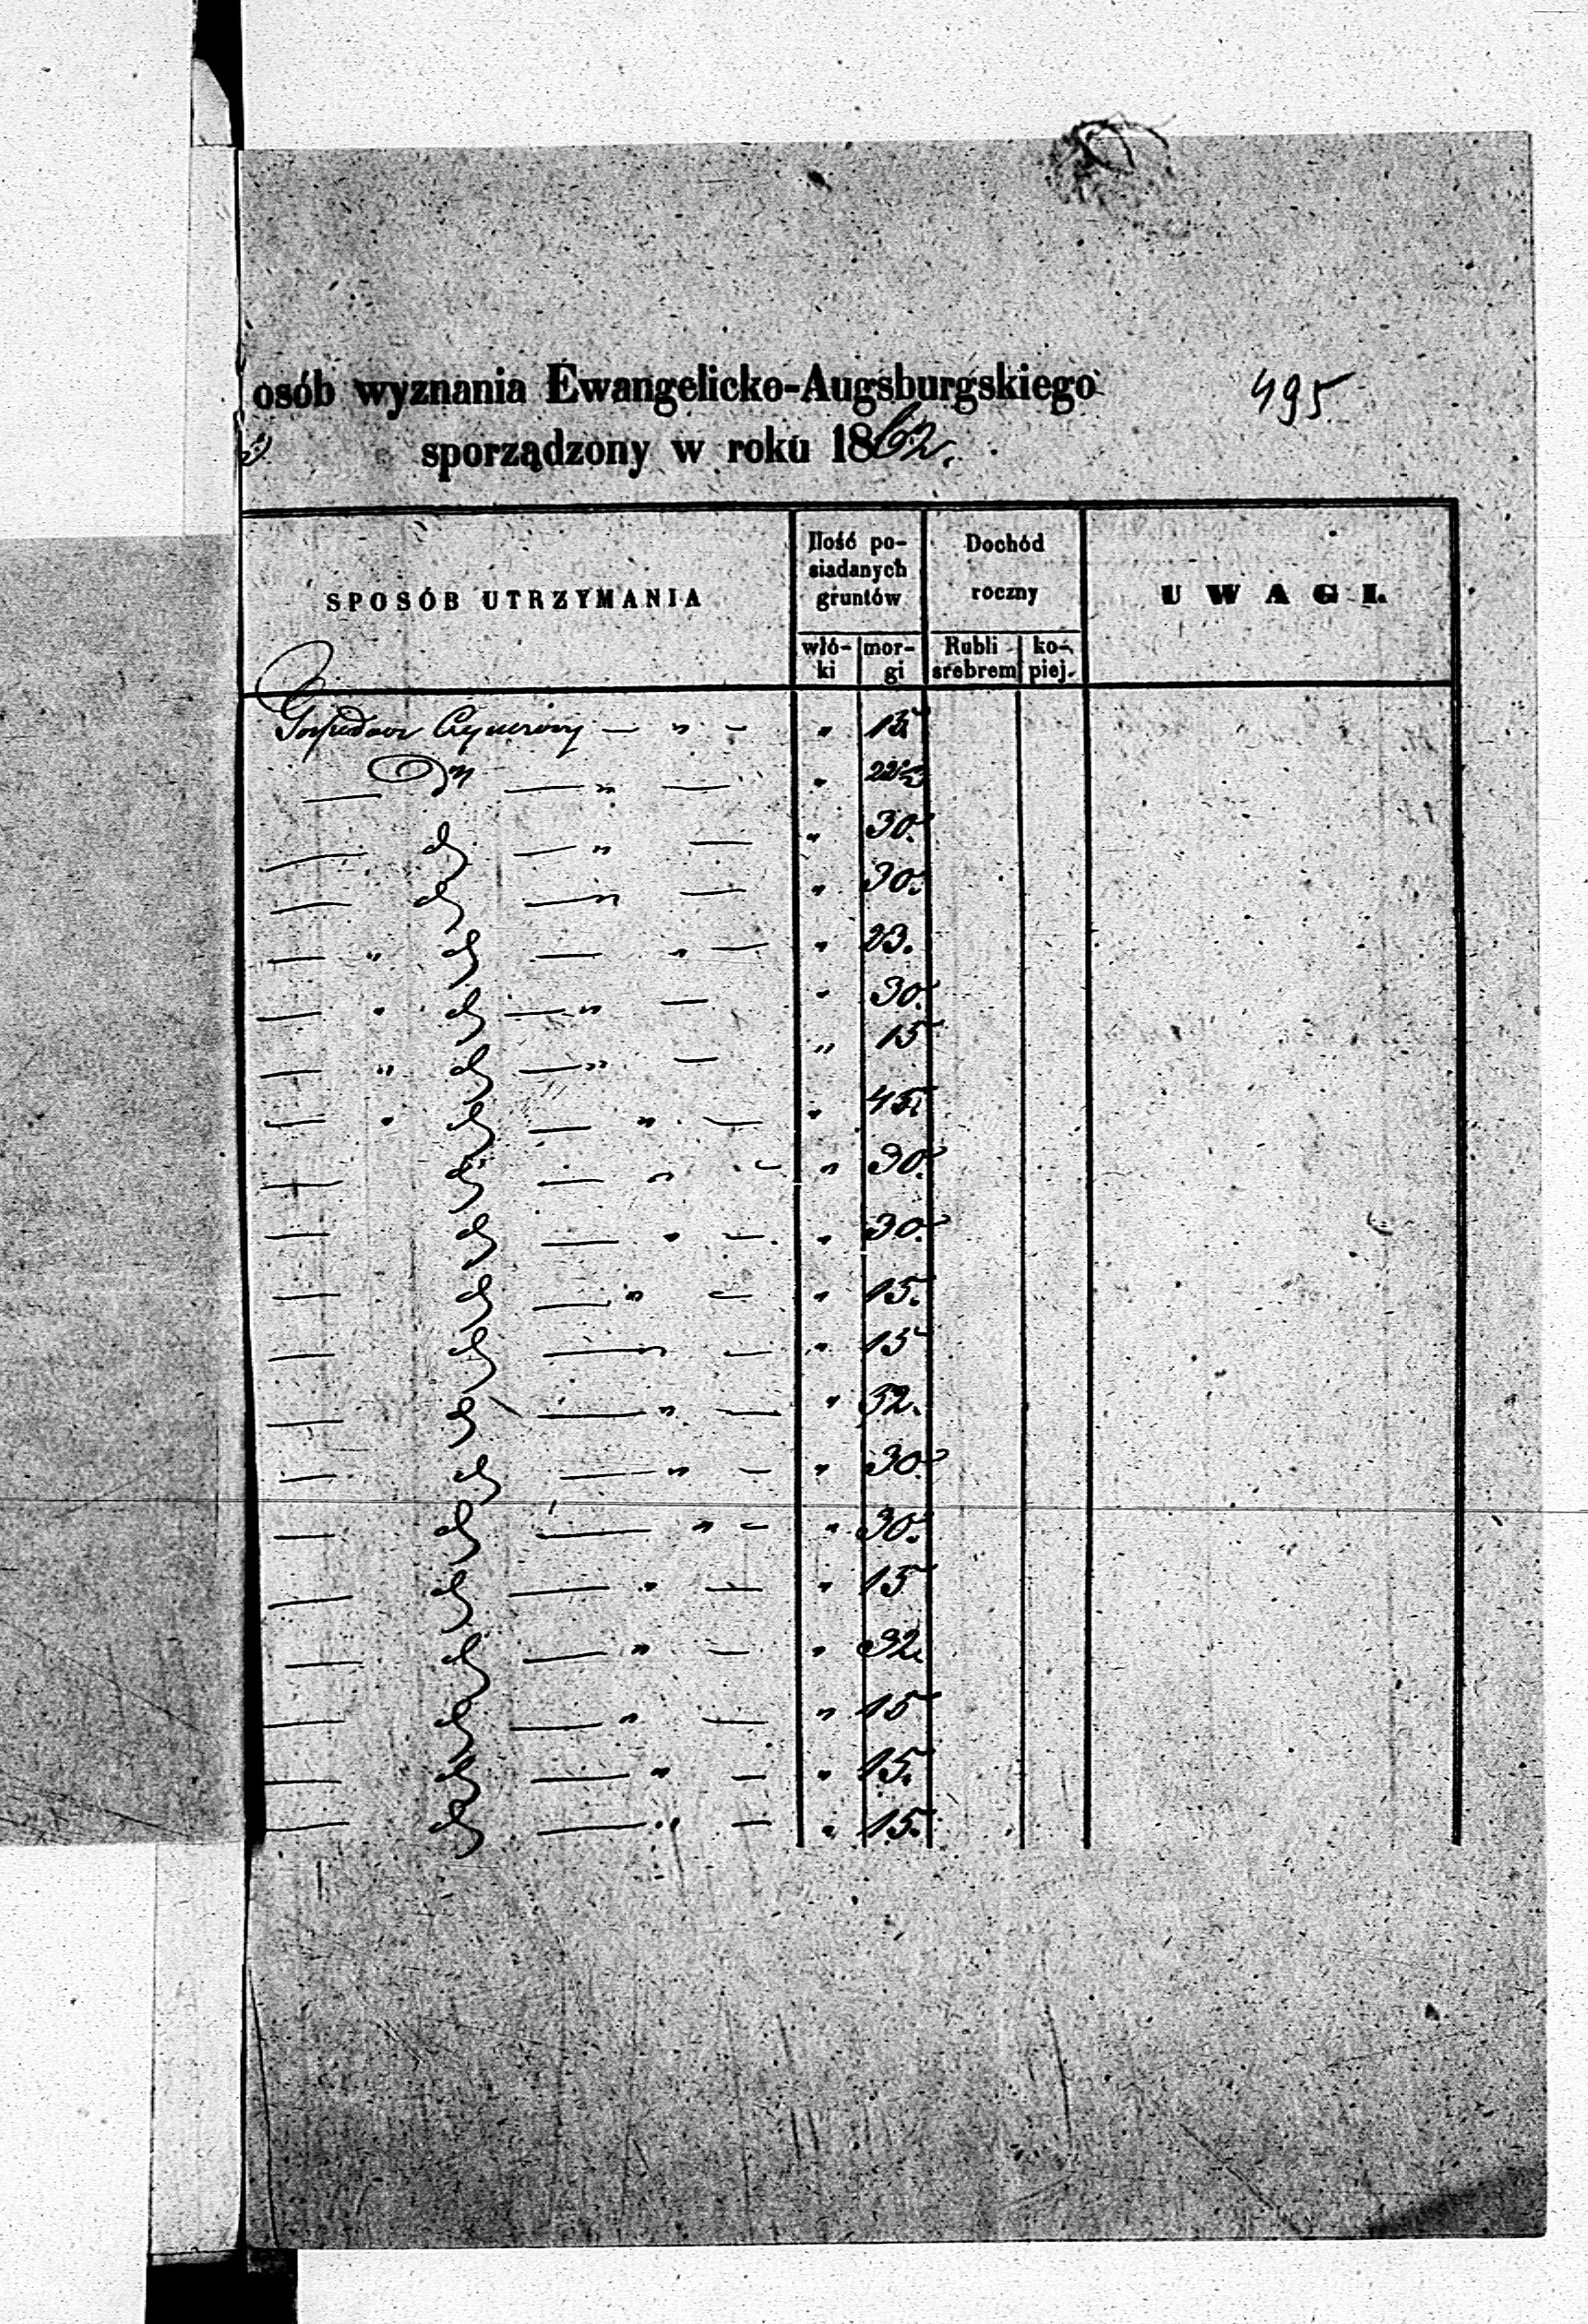 osób wyznania Ewangelicko-Augsburgskiego 495
sporządzony w roku 1862.
SPOSÓB UTRZYMANIA
Ilość po-
siadanych
gruntów
Dochód
roczny
UWAGI.
włó-
ki
mor-
gi
Rubli
srebrem
ko-
piej.
Gospodarz Czynszowy — " — " 15
— Do — " — " 22½
— d — " — " 30.
— d — " — " 30.
— " d — " — " 23.
— " d — " — " 30.
— " d — " — " 15
— " d — " — " 45.
— d — " — " 30.
— d — " — " 30.
— d — " — " 15.
— d — " — " 15
— d — " — " 32.
— d — " — " 30
— d — " — " 30.
— d — " — " 15
— d — " — " 32.
— d — " — " 15
— d — " — " 15.
— d — " — " 15.